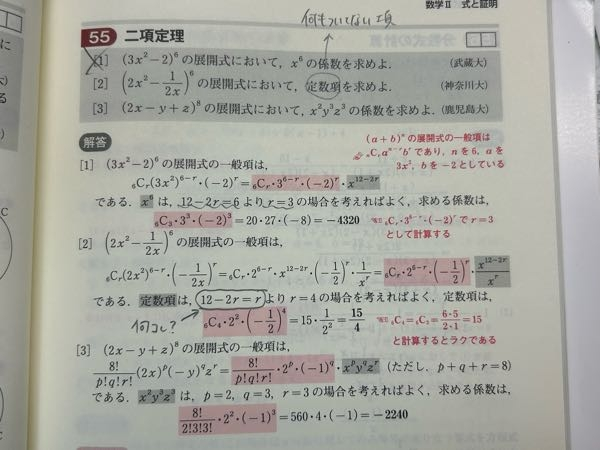 数学Ⅱ 式と証明
何もついてない項
55 二項定理
[1] (3x²−2)⁶ の展開式において, x⁶ の係数を求めよ. (武蔵大)
[2] (2x²−1/2x)⁶ の展開式において, 定数項を求めよ. (神奈川大)
[3] (2x−y+z)⁸ の展開式において, x²y³z³ の係数を求めよ. (鹿児島大)
解答
[1] (3x²−2)⁶ の展開式の一般項は,
(a+b)ⁿ の展開式の一般項は
ₙCᵣaⁿ⁻ʳbʳ であり, n を 6, a を
3x², b を −2 としている
₆Cᵣ(3x²)⁶⁻ʳ·(−2)ʳ=₆Cᵣ·3⁶⁻ʳ·(−2)ʳ·x¹²⁻²ʳ
である. x⁶ は, 12−2r=6 より r=3 の場合を考えればよく, 求める係数は,
₆C₃·3³·(−2)³=20·27·(−8)=−4320
₆Cᵣ·3⁶⁻ʳ·(−2)ʳ で r=3
として計算する
[2] (2x²−1/2x)⁶ の展開式の一般項は,
₆Cᵣ(2x²)⁶⁻ʳ·(−1/2x)ʳ=₆Cᵣ·2⁶⁻ʳ·x¹²⁻²ʳ·(−1/2)ʳ·1/xʳ=₆Cᵣ·2⁶⁻ʳ·(−1/2)ʳ·x¹²⁻²ʳ/xʳ
である. 定数項は, 12−2r=r より r=4 の場合を考えればよく, 定数項は,
何コレ?
₆C₄·2²·(−1/2)⁴=15·1/2²=15/4
₆C₄=₆C₂=6·5/2·1=15
と計算するとラクである
[3] (2x−y+z)⁸ の展開式の一般項は,
8!/p!q!r!(2x)ᵖ(−y)^q zʳ=8!/p!q!r!·2ᵖ·(−1)^q·xᵖy^q zʳ (ただし, p+q+r=8)
である. x²y³z³ は, p=2, q=3, r=3 の場合を考えればよく, 求める係数は,
8!/2!3!3!·2²·(−1)³=560·4·(−1)=−2240